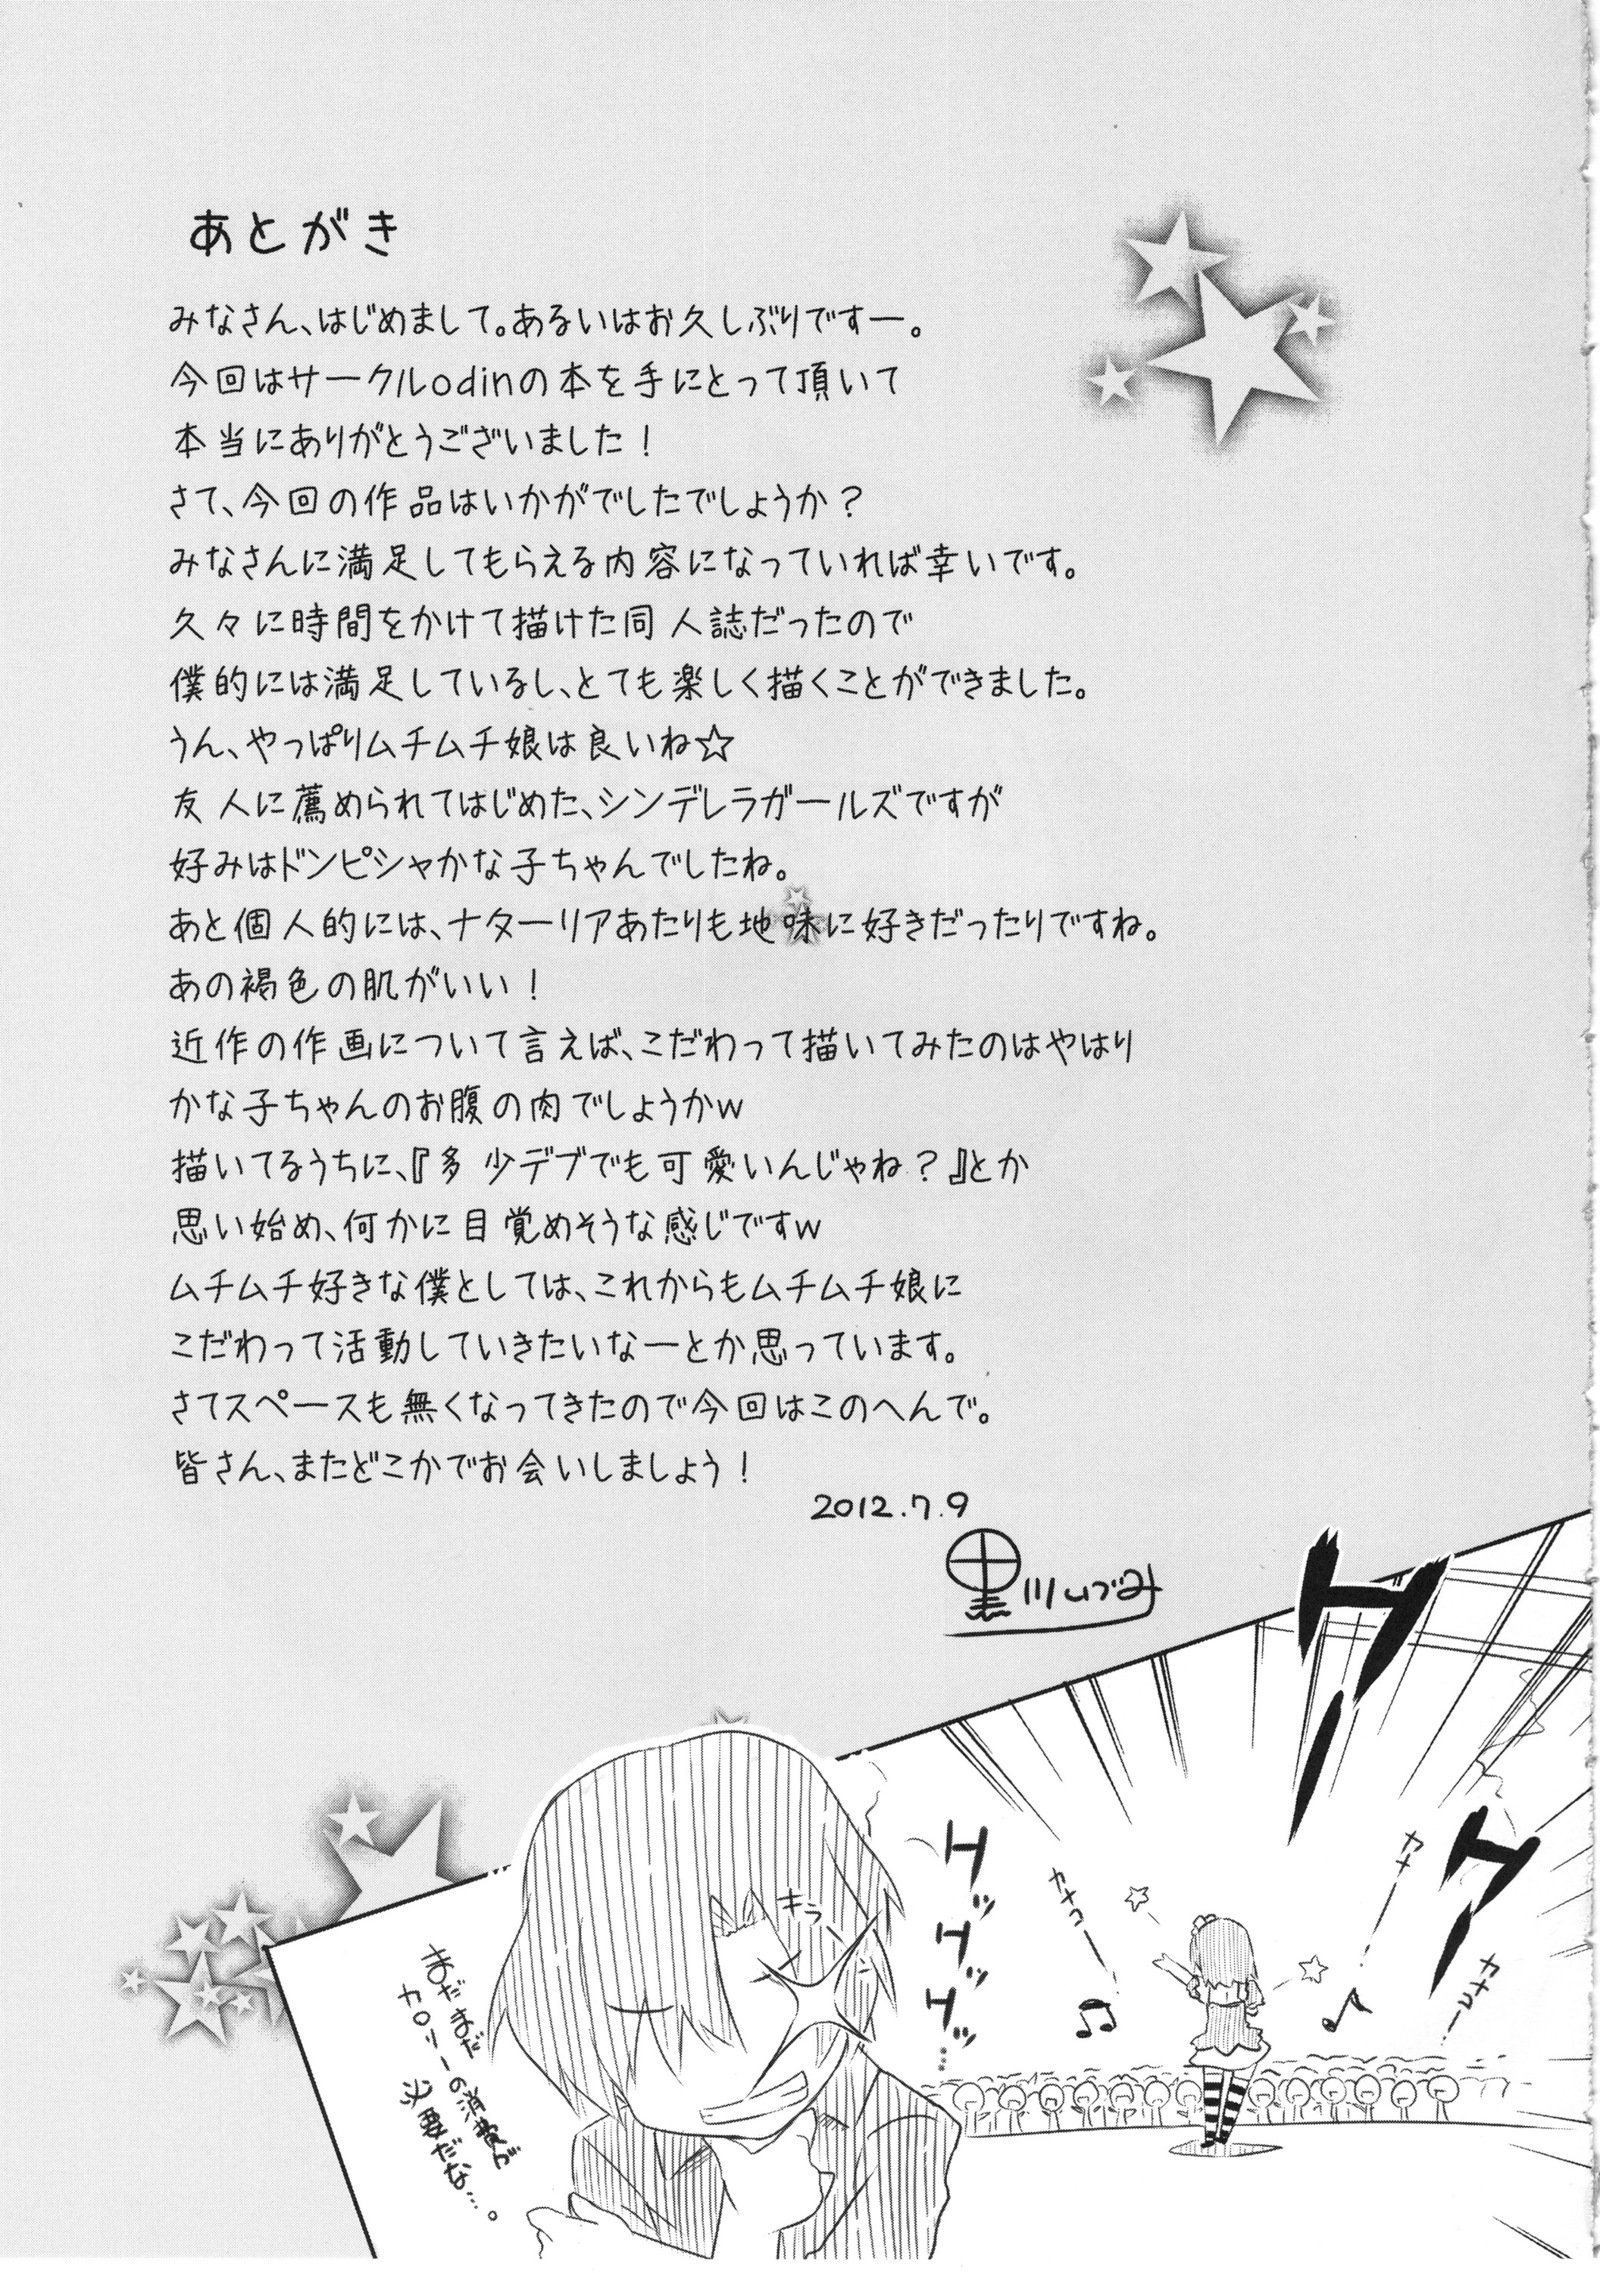 あとがき
みなさん、はじめまして。あるいはお久しぶりですー。
今回はサークルodinの本を手にとって頂いて
本当にありがとうございました！
さて、今回の作品はいかがでしたでしょうか？
みなさんに満足してもらえる内容になっていれば幸いです。
久々に時間をかけて描けた同人誌だったので
僕的には満足しているし、とても楽しく描くことができました。
うん、やっぱりムチムチ娘は良いね☆
友人に薦められてはじめた、シンデレラガールズですが
好みはドンピシャかな子ちゃんでしたね。
あと個人的には、ナターリアあたりも地味に好きだったりですね。
あの褐色の肌がいい！
近作の作画について言えば、こだわって描いてみたのはやはり
かな子ちゃんのお腹の肉でしょうかw
描いてるうちに、『多少デブでも可愛いんじゃね？』とか
思い始め、何かに目覚めそうな感じですw
ムチムチ好きな僕としては、これからもムチムチ娘に
こだわって活動していきたいなーとか思っています。
さてスペースも無くなってきたので今回はこのへんで。
皆さん、またどこかでお会いしましょう！
2012.7.9
黒川いづみ
ワー
ワー
ドッ
ドッ
ドッ…
カナコー
カナ
カナコー
キラーン
まだまだ
カロリーの消費が
必要だな…。